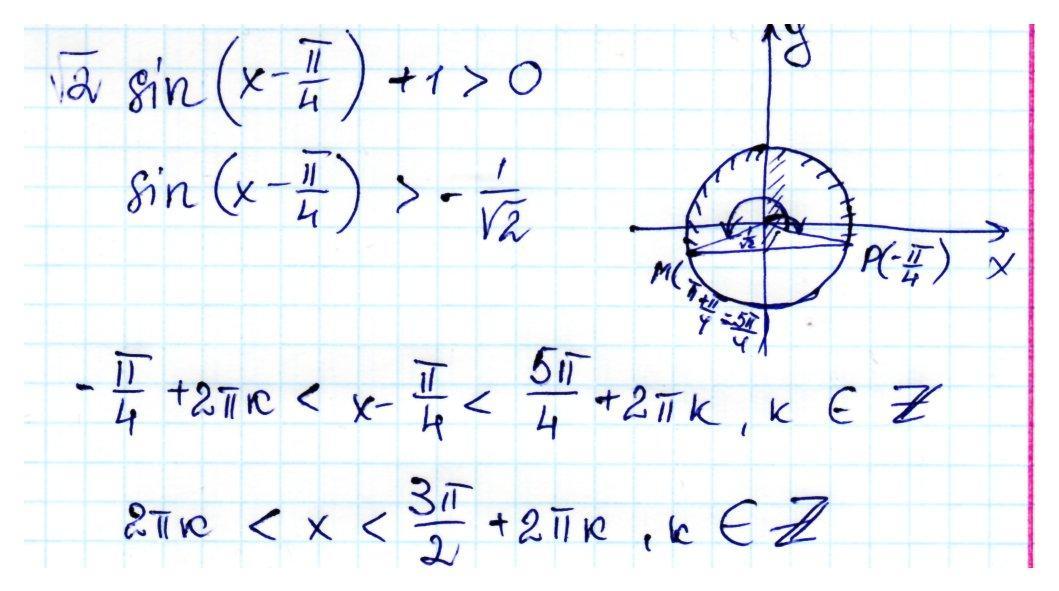 √2 sin(x - π/4) + 1 > 0
sin(x - π/4) > - 1/√2
y
x
1/√2
P(-π/4)
M(π + π/4 = 5π/4)
- π/4 + 2πk < x - π/4 < 5π/4 + 2πk, k ∈ ℤ
2πk < x < 3π/2 + 2πk, k ∈ ℤ